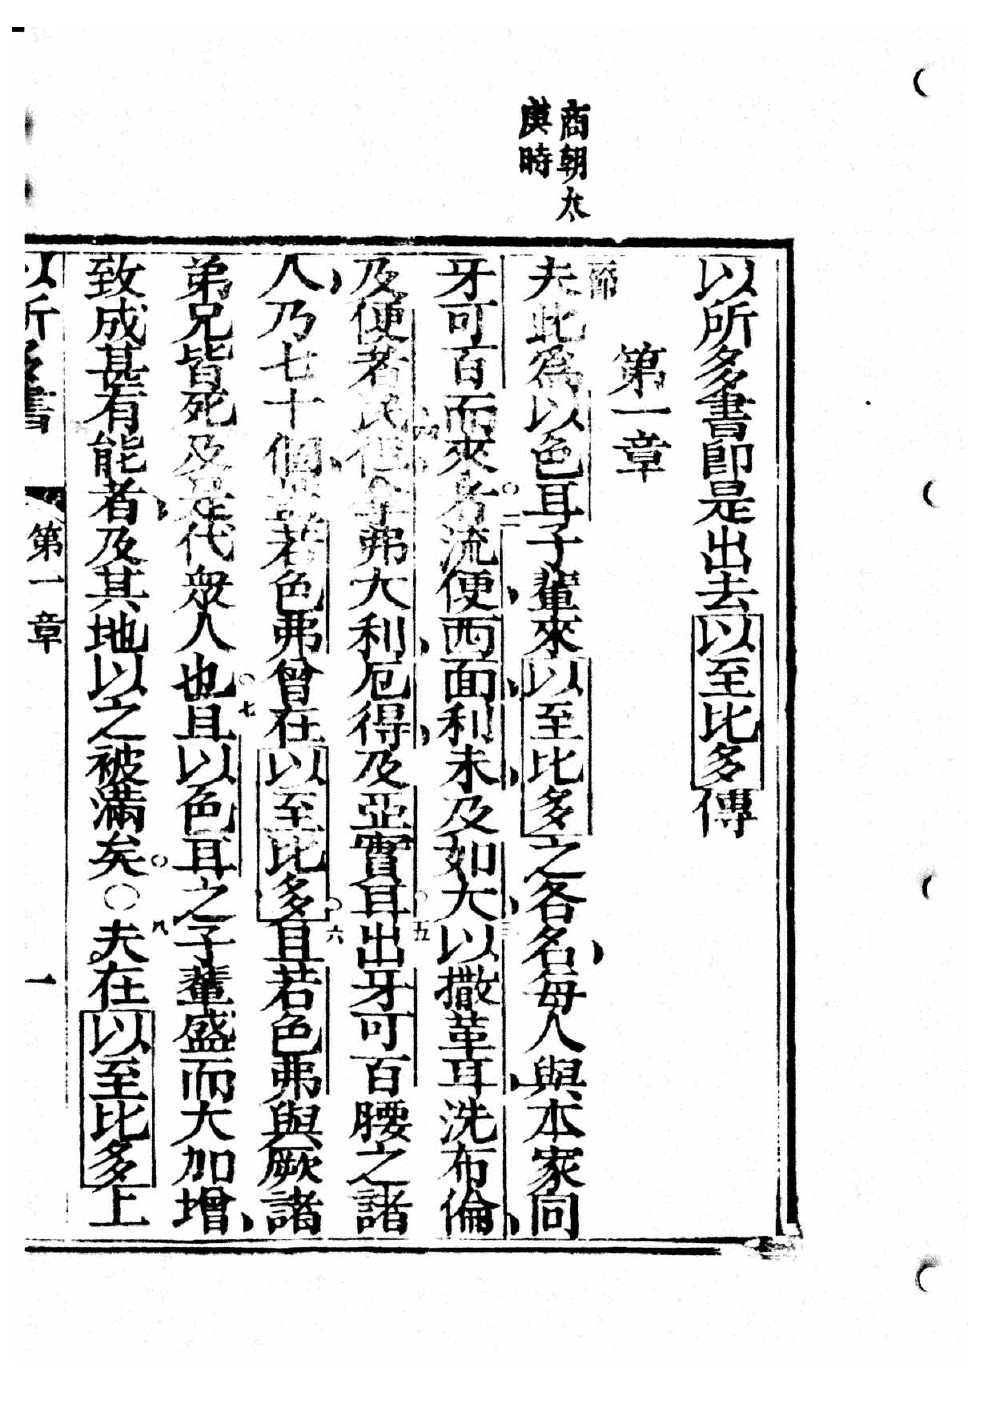 商朝太
庚時
以所多書即是出去以至比多傳
第一章
節
夫此為以色耳子輩來以至比多之各名每人與本家同
牙可百而來者○二流便西面利未及如大○三以撒革耳洗布倫
及便者民但拿弗大利厄得及亞實耳○五出牙可百腰之諸
人乃七十個若色弗曾在以至比多○六且若色弗與厥諸
弟兄皆死及是代衆人也○七且以色耳之子輩盛而大加增
致成甚有能者及其地以之被滿矣○○八夫在以至比多上
以所多書 第一章 一